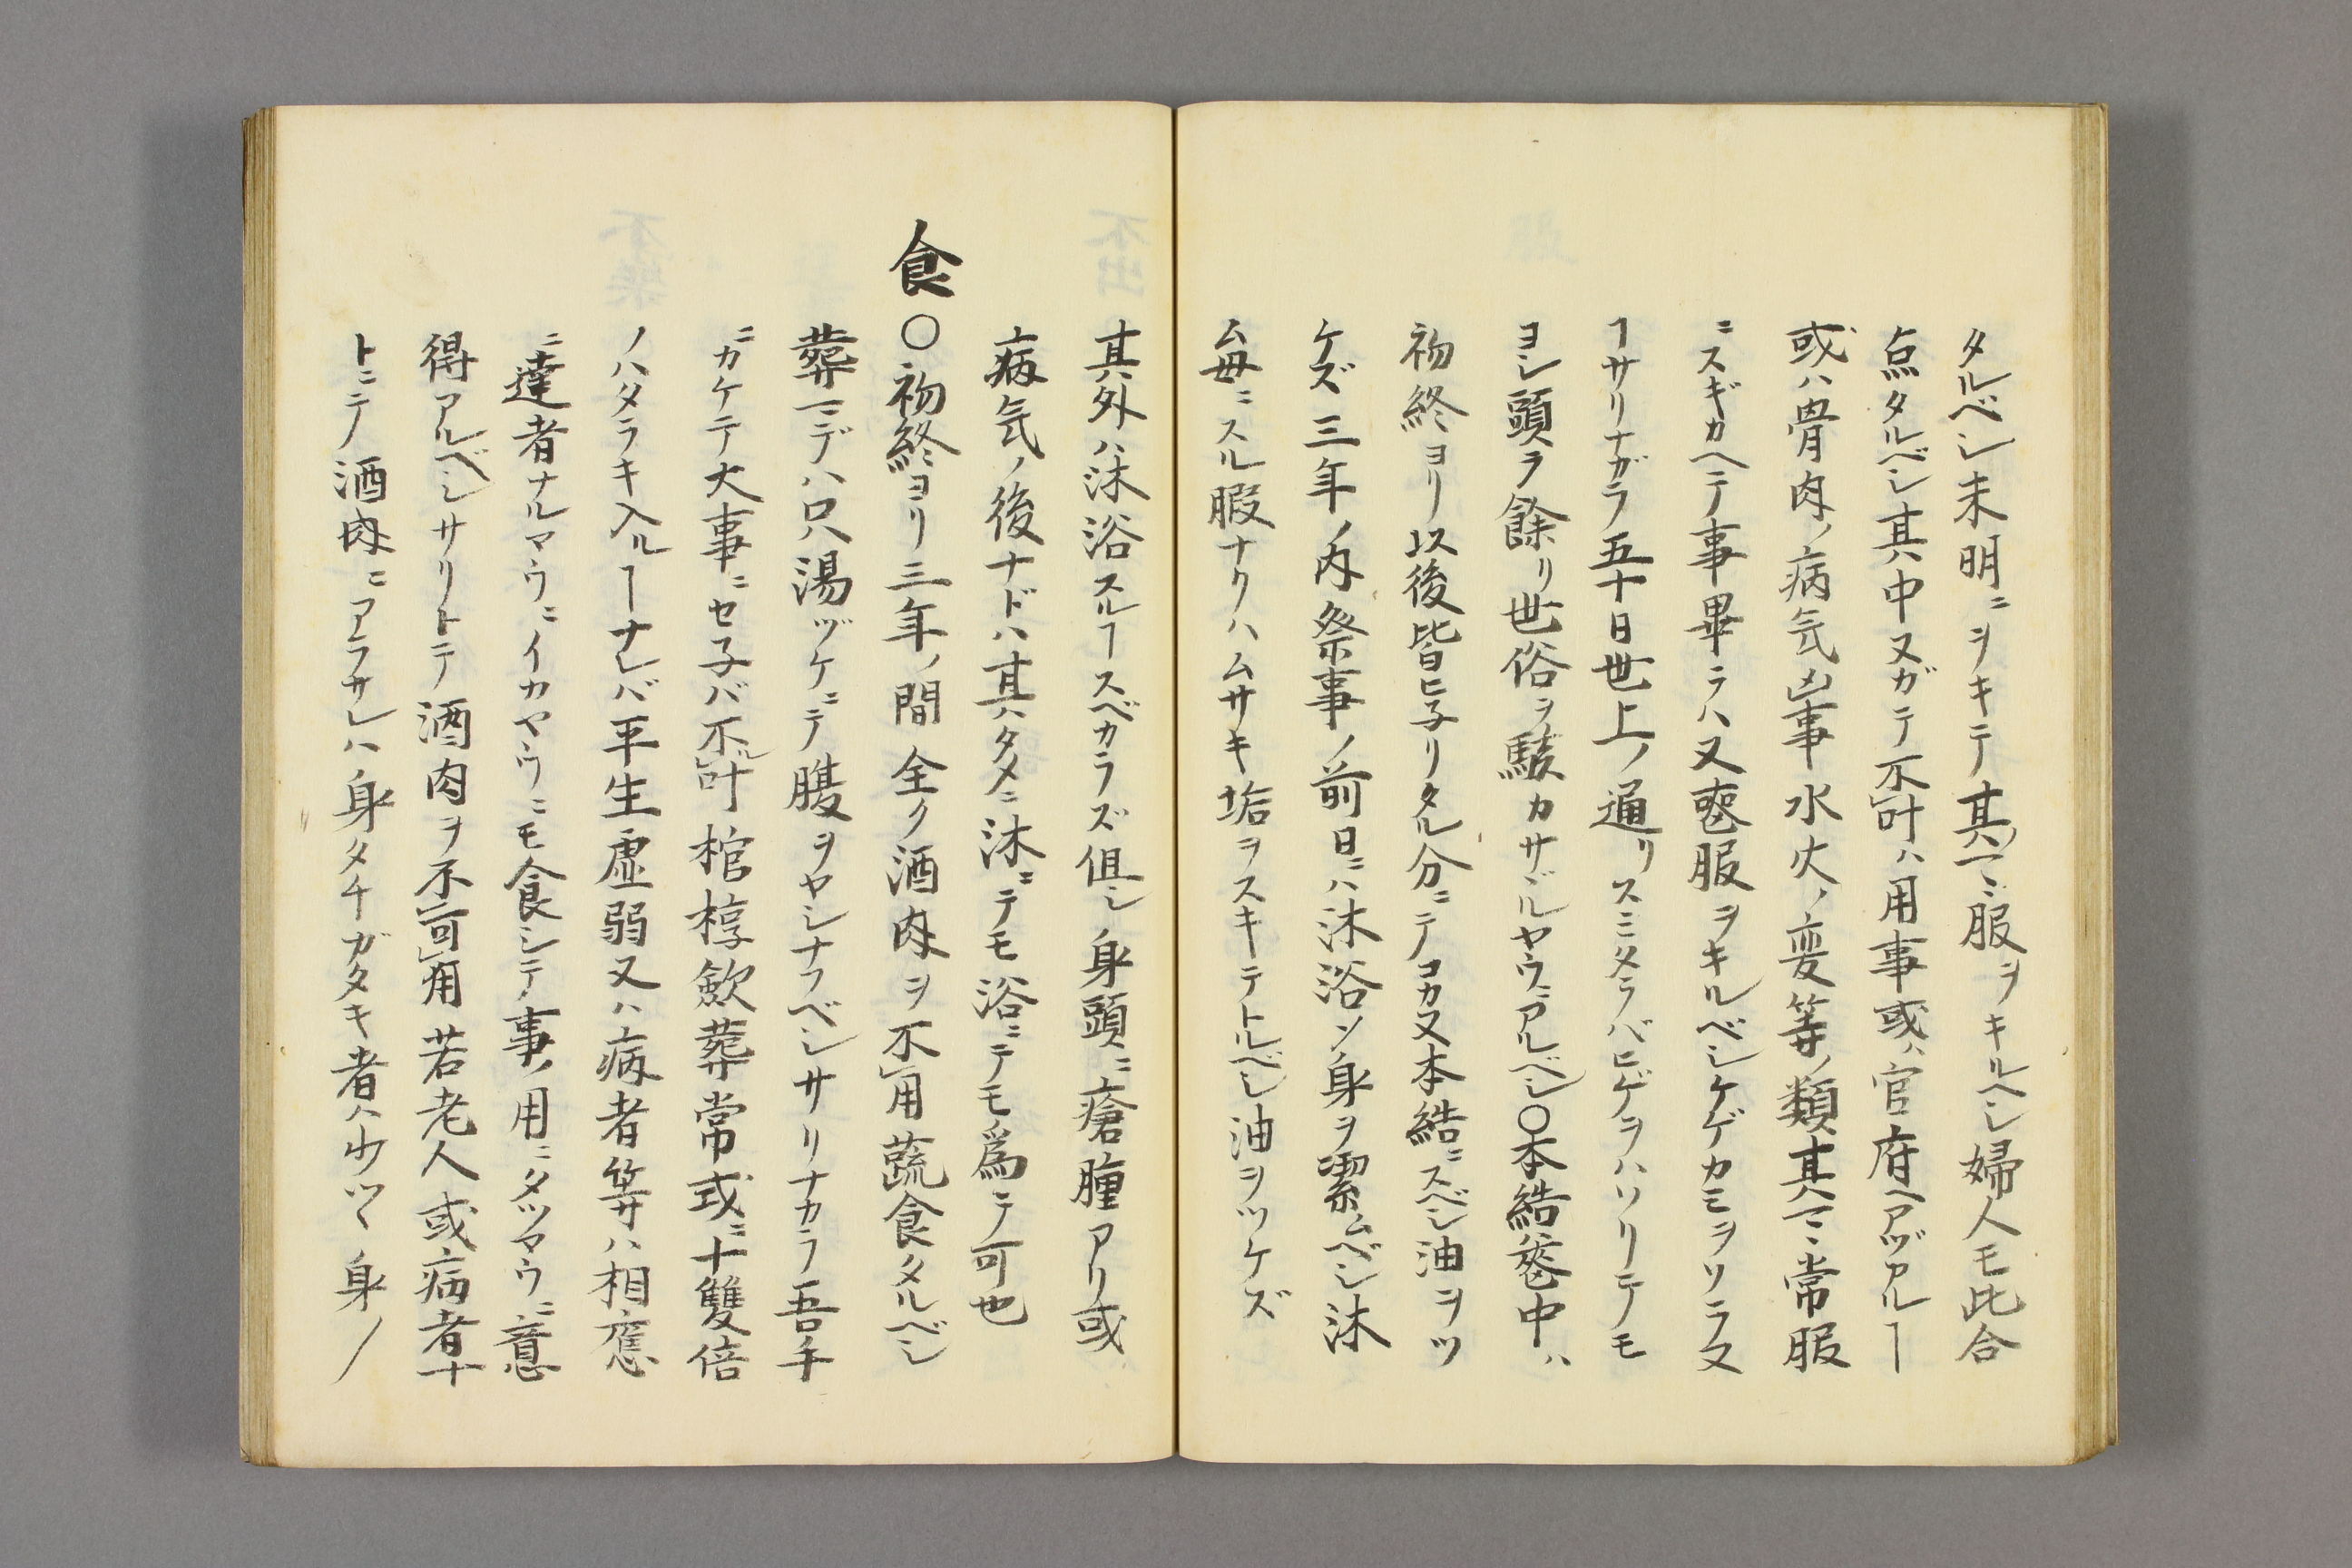 タルベシ未明ニヲキテ其マヽ服ヲキルヘシ婦人モ此合
点タルベシ其中ヌガテ不叶ハ用事或ハ官府ヘアヅアルヿ
或ハ骨肉ノ病気凶事水火ノ変等ノ類其マヽ常服
ニスギカヘテ事畢ラハ又喪服ヲキルベシケゲカミヲソラヌ
ヿサリナガラ五十日世上ノ通リスミタラバヒゲヲハソリテモ
ヨシ頭ヲ餘リ世俗ヲ駭カサヾルヤウニアルベシ○本結喪中ハ
初終ヨリ以後皆ヒ子リタル分ニテコカ又本結ニスベシ油ヲツ
ケズ三年ノ内祭事ノ前日ニハ沐浴ソ身ヲ潔ムベシ沐
ム毋ニスル暇ナクハムサキ垢ヲスキテトルベシ油ヲツケズ
其外ハ沐浴スルヿスベカラズ但シ身頭ニ瘡腫アリ或
病気ノ後ナドハ其タメニ沐ニテモ浴ニテモ爲テ可也
食○初終ヨリ三年ノ間全ク酒肉ヲ不用蔬食タルベシ
葬マデハ只湯ヅケニテ腹ヲヤシナフベシサリナカラ吾手
ニカケテ大事ニセ子バ不叶棺椁歛葬常或ニ十雙倍
ノハタラキ入ルヿナレバ平生虚弱又ハ病者等ハ相應
ニ達者ナルマウニイカヤウニモ食シテ事ノ用ニタツマウニ意
得アルベシサリトテ酒肉ヲ不可用若老人或病者十
トニテ酒肉ニアラサレハ身タチガタキ者ハ少ツヽ身ノ